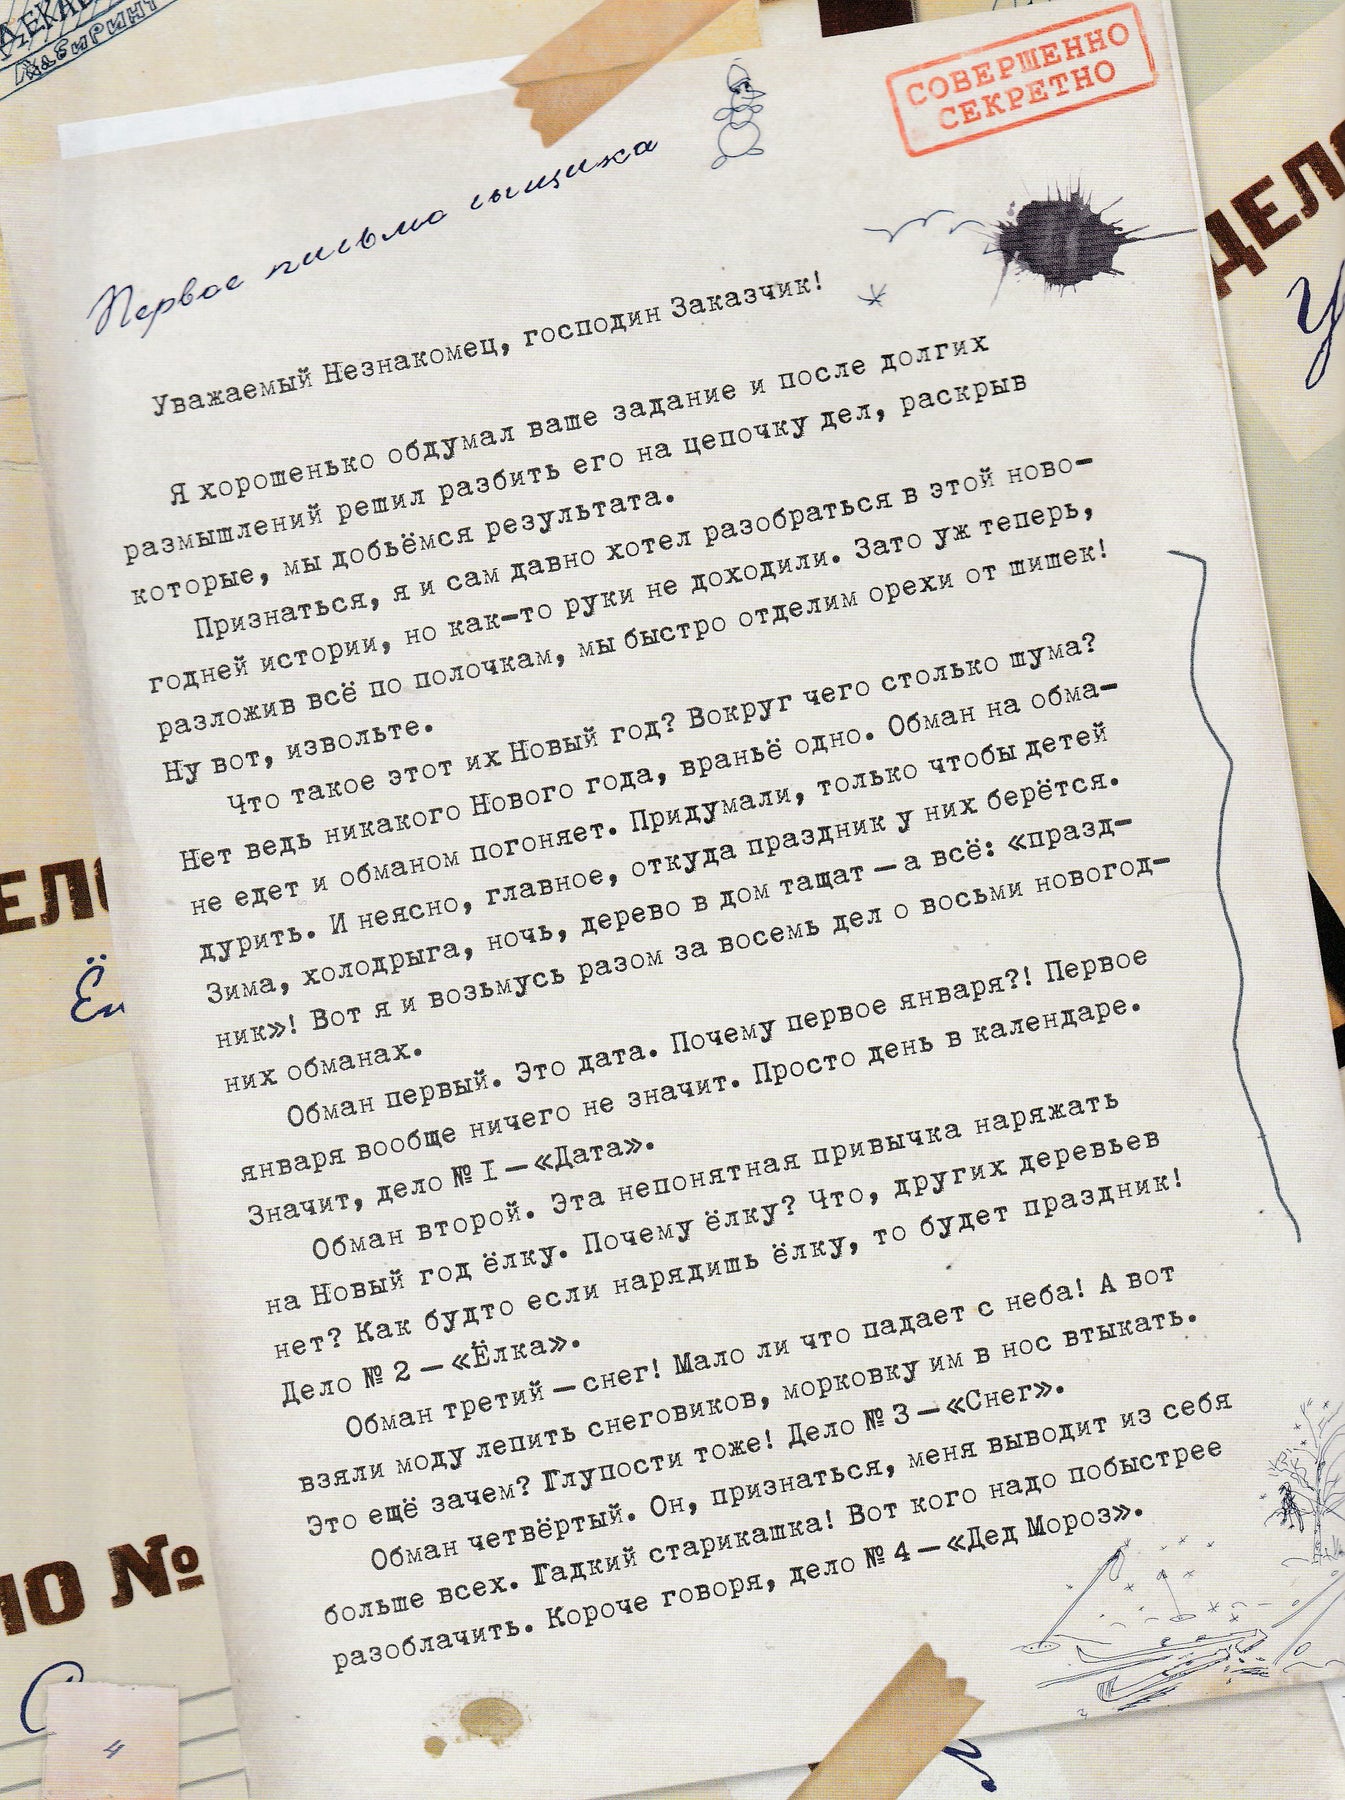 Лабиринт
СОВЕРШЕННО
СЕКРЕТНО
Первое письмо сыщика
ДЕЛО
У
Уважаемый Незнакомец, господин Заказчик!
Я хорошенько обдумал ваше задание и после долгих
размышлений решил разбить его на цепочку дел, раскрыв
которые, мы добьёмся результата.
Признаться, я и сам давно хотел разобраться в этой ново-
годней истории, но как-то руки не доходили. Зато уж теперь,
разложив всё по полочкам, мы быстро отделим орехи от шишек!
Ну вот, извольте.
Что такое этот их Новый год? Вокруг чего столько шума?
Нет ведь никакого Нового года, враньё одно. Обман на обма-
не едет и обманом погоняет. Придумали, только чтобы детей
дурить. И неясно, главное, откуда праздник у них берётся.
Зима, холодрыга, ночь, дерево в дом тащат — а всё: «празд-
ник»! Вот я и возьмусь разом за восемь дел о восьми новогод-
них обманах.
Обман первый. Это дата. Почему первое января?! Первое
января вообще ничего не значит. Просто день в календаре.
Значит, дело № 1 — «Дата».
Обман второй. Эта непонятная привычка наряжать
на Новый год ёлку. Почему ёлку? Что, других деревьев
нет? Как будто если нарядишь ёлку, то будет праздник!
Дело № 2 — «Ёлка».
Обман третий — снег! Мало ли что падает с неба! А вот
взяли моду лепить снеговиков, морковку им в нос втыкать.
Это ещё зачем? Глупости тоже! Дело № 3 — «Снег».
Обман четвёртый. Он, признаться, меня выводит из себя
больше всех. Гадкий старикашка! Вот кого надо побыстрее
разоблачить. Короче говоря, дело № 4 — «Дед Мороз».
ЕЛО
Ёл
ЛО №
С
4